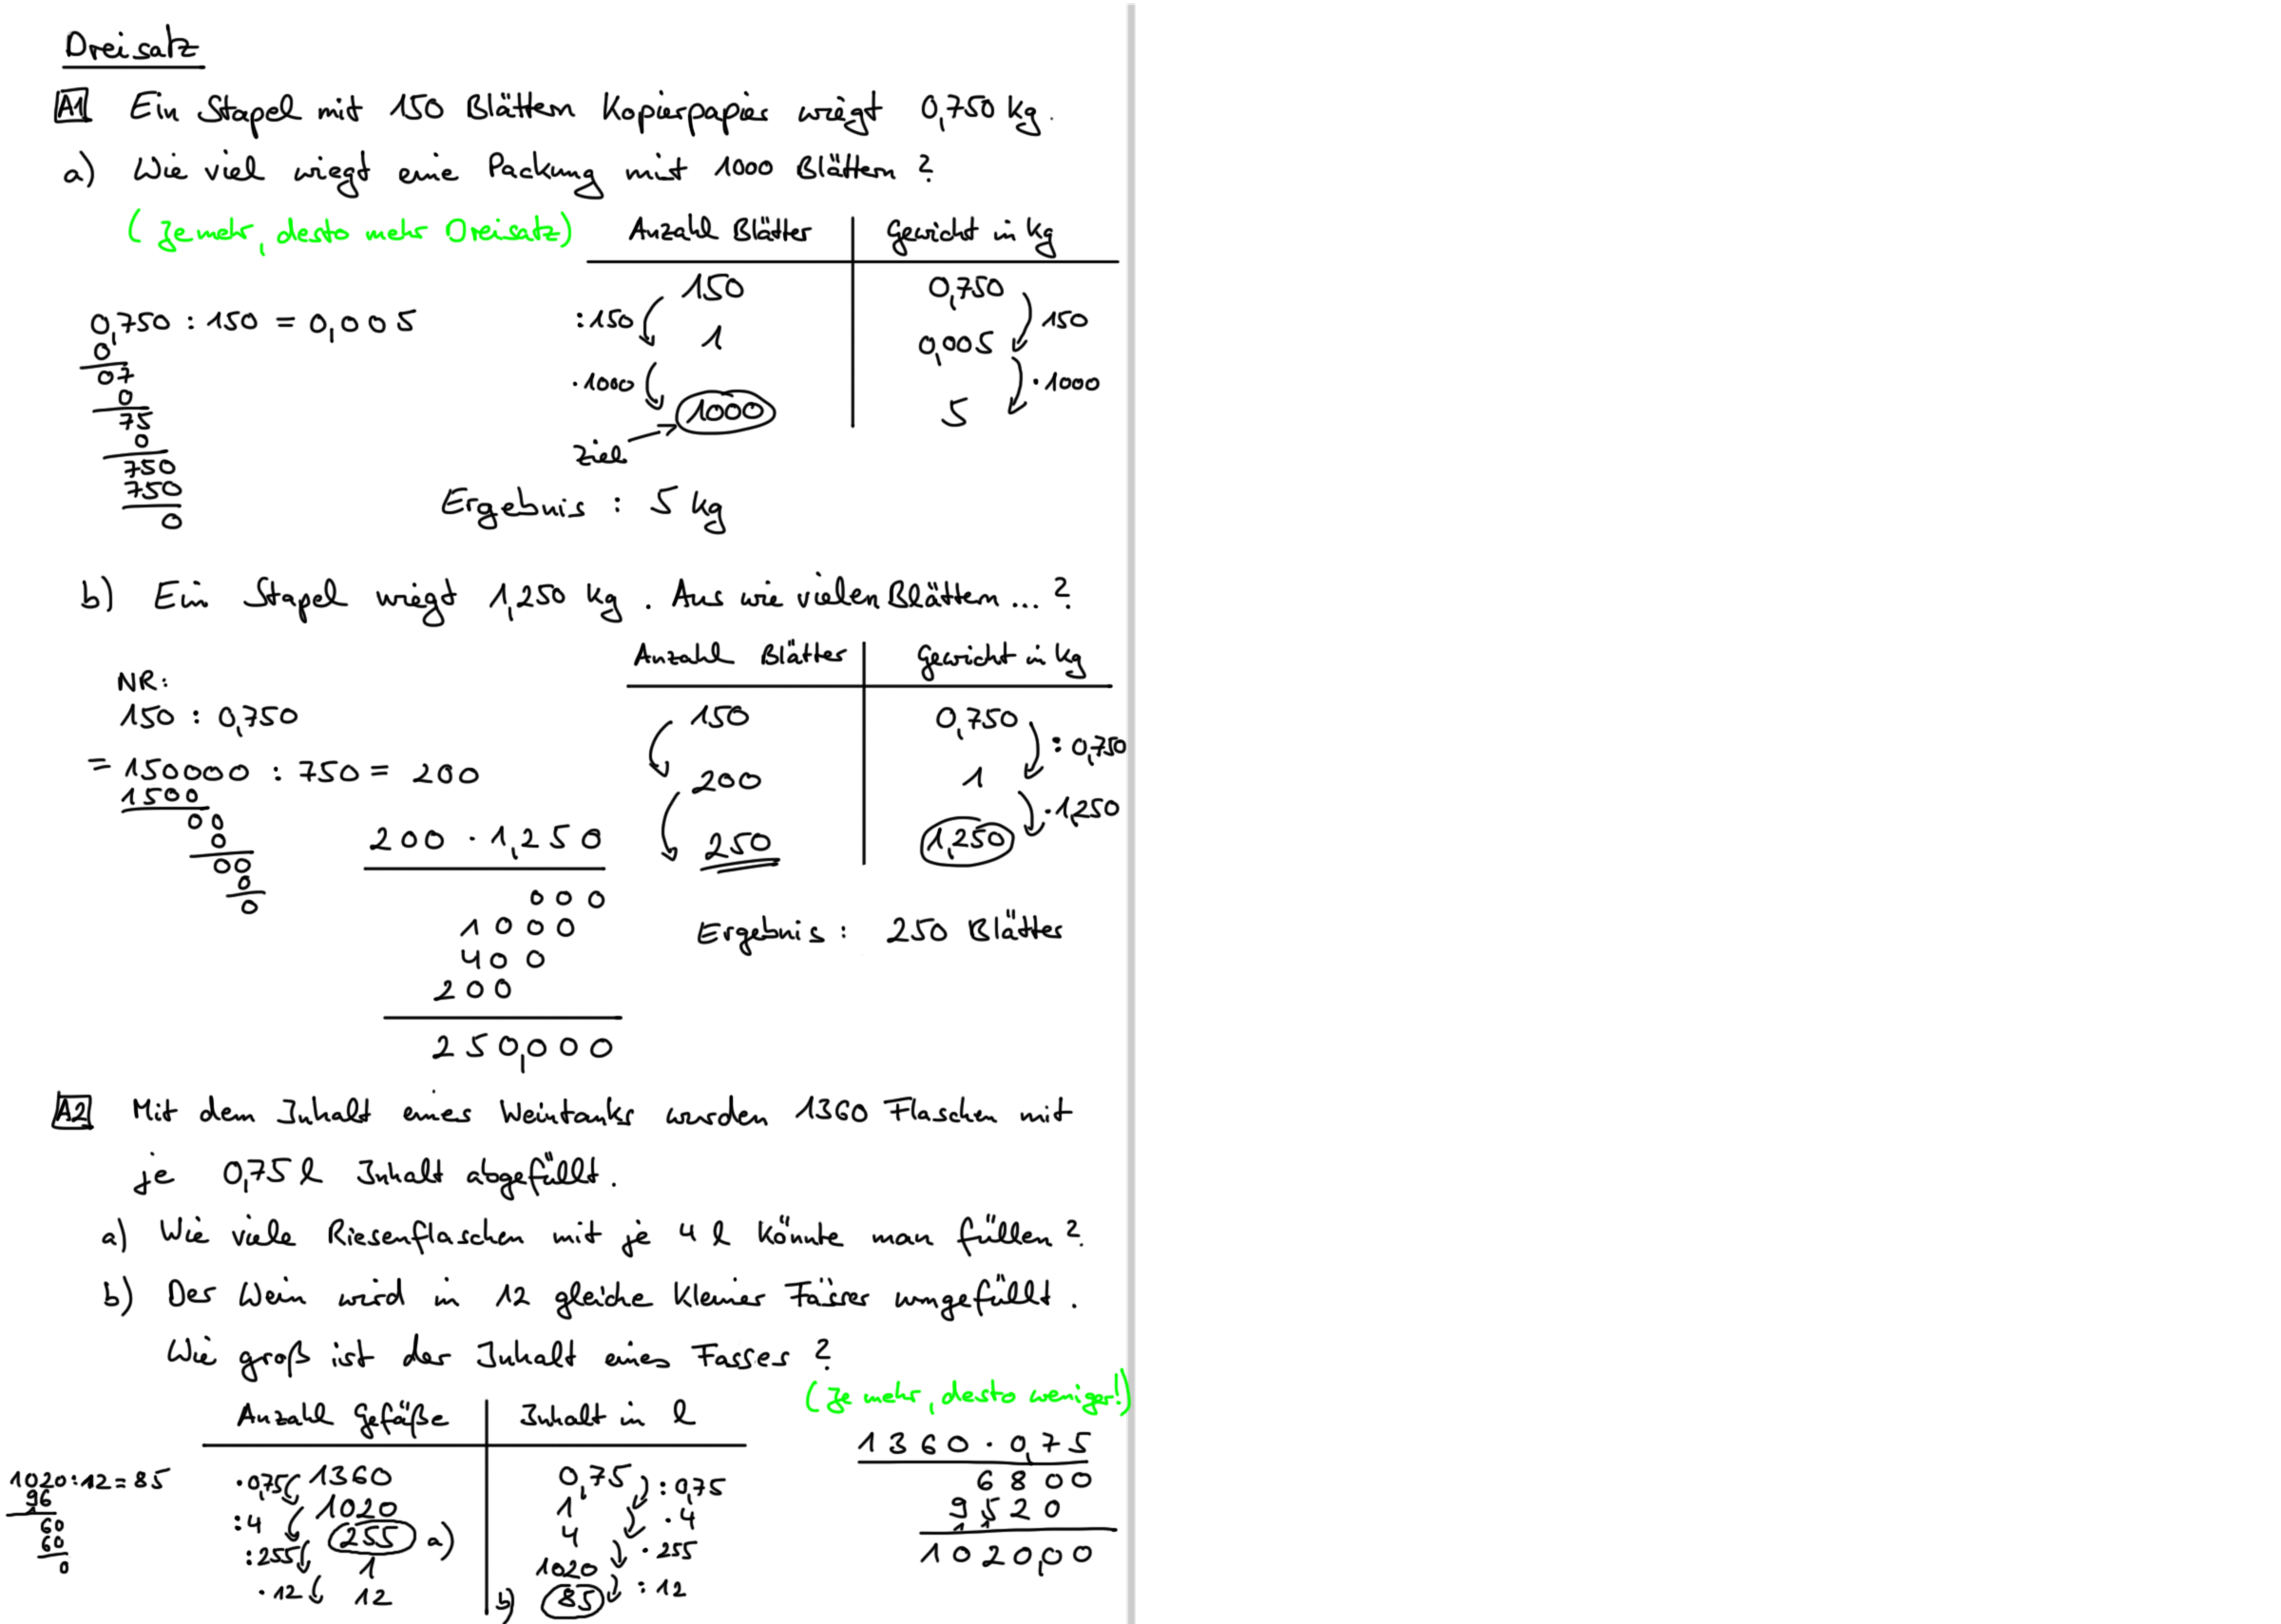 Dreisatz
A1 Ein Stapel mit 150 Blättern Kopierpapier wiegt 0,750 kg.
a) Wie viel wiegt eine Packung mit 1000 Blättern ?
(Je mehr, desto mehr Dreisatz)
Anzahl Blätter | Gewicht in kg
150 | 0,750
:150 150
0,750 : 150 = 0,005
1 | 0,005
0
07
·1000 ·1000
0
1000 | 5
75
0
Ziel
750
750
Ergebnis : 5 kg
0
b) Ein Stapel wiegt 1,250 kg . Aus wie vielen Blättern ... ?
Anzahl Blätter | Gewicht in kg
NR:
150 : 0,750
150 | 0,750
: 0,750
= 150000 : 750 = 200
200 | 1
1500
·1,250
00
0
200 · 1,250
250 | 1,250
00
0
0
000
1000
Ergebnis : 250 Blätter
400
200
250,000
A2 Mit dem Inhalt eines Weintanks wurden 1360 Flaschen mit
je 0,75 l Inhalt abgefüllt .
a) Wie viele Riesenflaschen mit je 4 l könnte man füllen ?
b) Der Wein wird in 12 gleiche kleiner Fässer umgefüllt .
Wie groß ist der Inhalt eines Fasses ?
(Je mehr, desto weniger!)
Anzahl Gefäße | Inhalt in l
1360 · 0,75
6800
9520
1 1
1020,00
1020:12=85
96
1
60
60
0
·0,75 1360 | 0,75 : 0,75
1020 | 1
:4 ·4
255 a) | 4
:255 ·255
1 | 1020
·12 :12
12 | b) 85